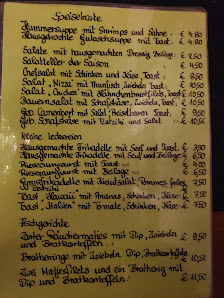 Speisekarte
Hummersuppe mit Shrimps und Sahne € 4.80
Hausgemachte Gulaschsuppe mit Toast € 4.80
Salate mit hausgemachten Dressing Beilage € 2.50
Salatteller der Saison € 4.50
Chefsalat mit Schinken und Käse, Toast
Salat "Nizza" mit Thunfisch, Zwiebeln, Toast
Salat "Chicken" mit Hähnchenbrustfilets, Toast
Bauernsalat mit Schafskäse, Zwiebeln, Toast
Geb. Camembert mit Salat, Preiselbeeren Toast
Geb. Schafskäse mit Tzatziki und Salat
Kleine Leckereien
Hausgemachte Frikadelle mit Senf und Toast
Hausgemachte Frikadelle mit Senf und Beilage
Riesencurrywurst mit Toast
Riesencurrywurst mit Beilage
mit Krautsalat, Pommes frites
Toast "Hawaii" mit Ananas, Schinken, Käse
Toast "Italien" mit Tomate, Schinken, Käse 7.50
Fischgerichte
Zarter Räuchermatjes mit Dip, Zwiebeln € 9.50
und Bratkartoffeln
Bratheringe mit Zwiebeln, Dip, Bratkartoffeln € 10.50
Zwei Matjesfilets und ein Brathering mit
Dip und Bratkartoffeln € 11.50